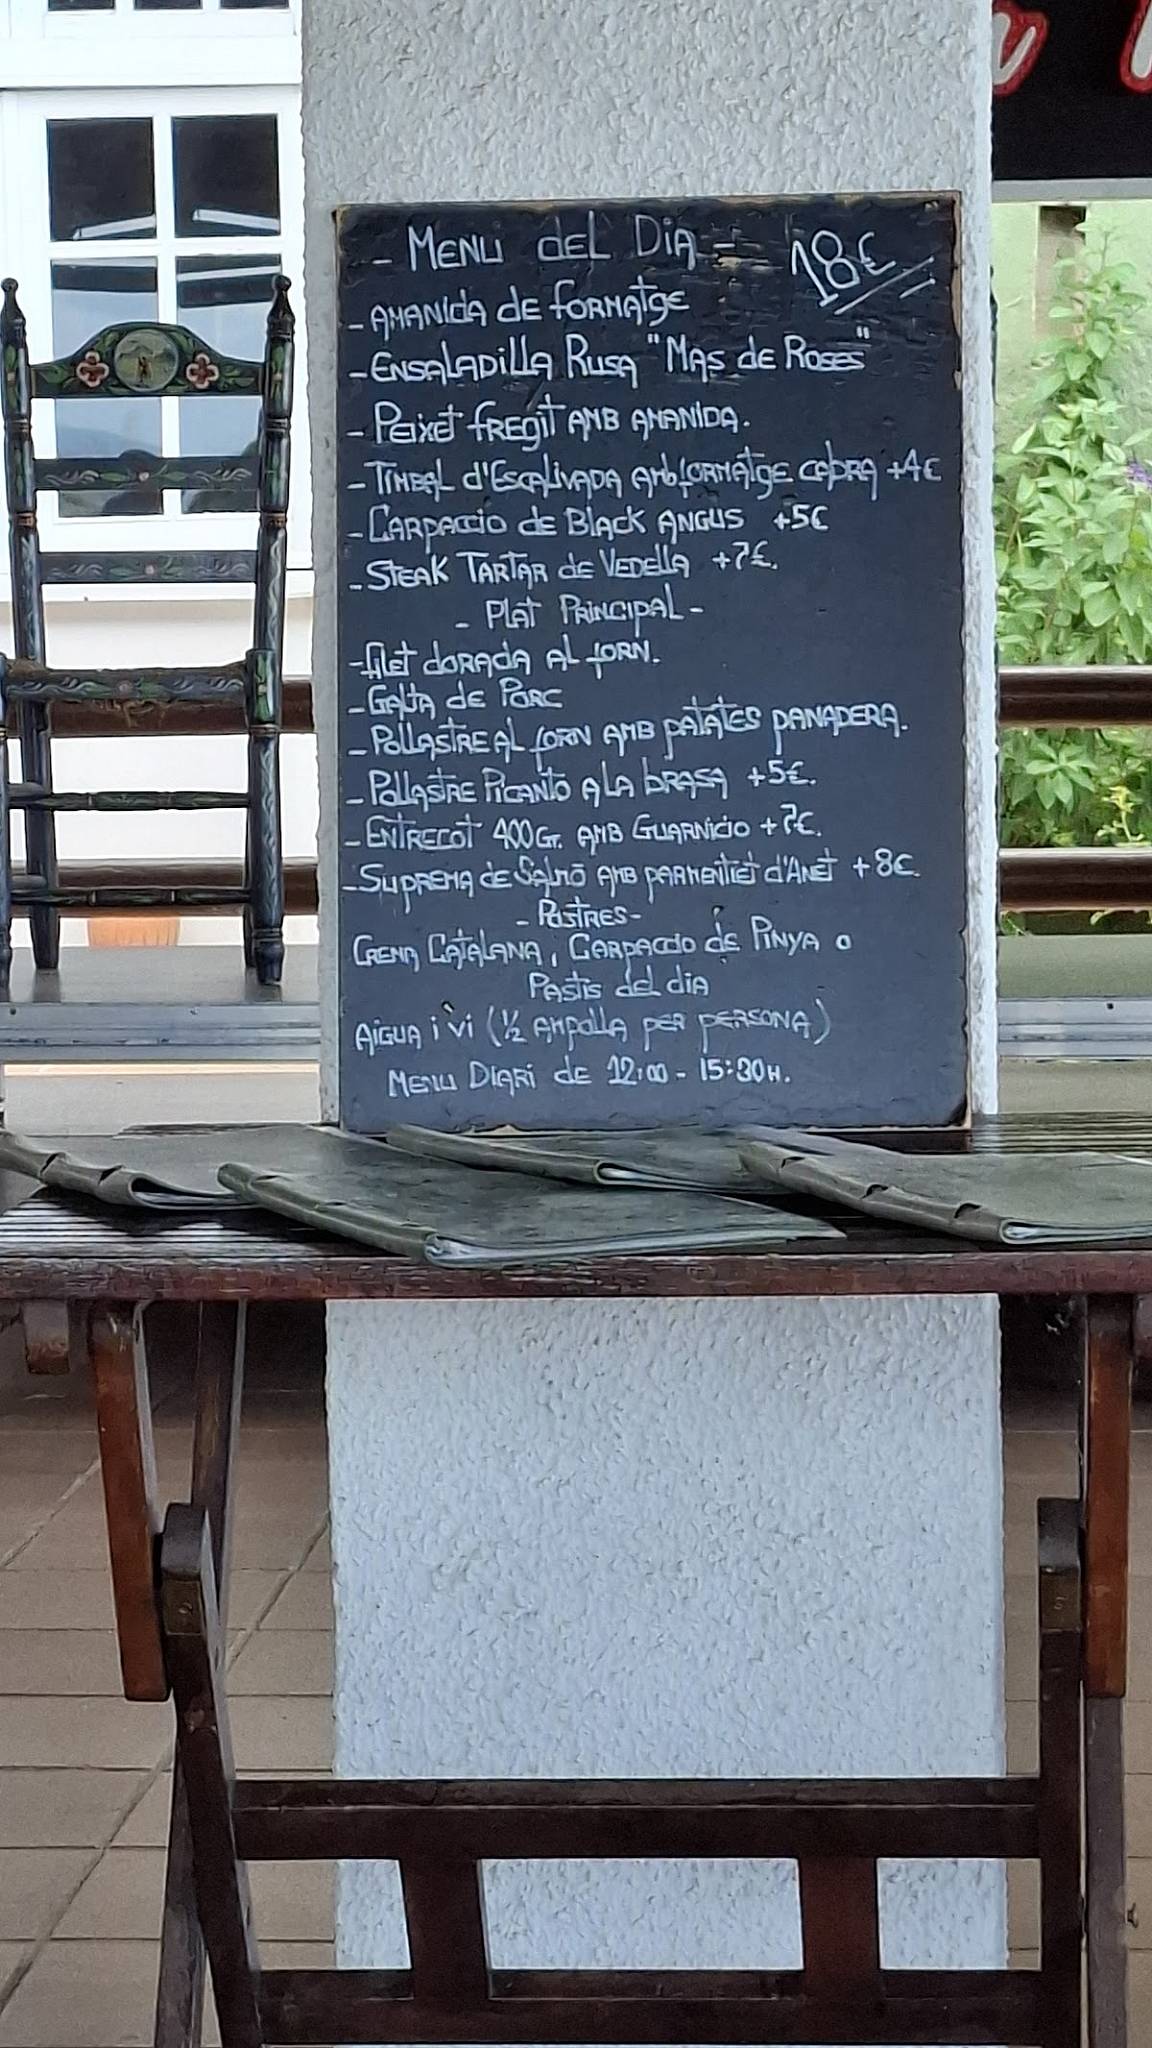 - Menu del Dia - 18€
- Amanida de formatge
- Ensaladilla Rusa "Mas de Roses"
- Peixet fregit amb amanida.
- Timbal d'Escalivada amb formatge cabra +4€
- Carpaccio de Black Angus +5€
- Steak Tartar de Vedella +7€.
- Plat Principal -
- filet dorada al forn.
- Galta de Porc
- Pollastre al forn amb patates panadera.
- Pollastre Picanto a la brasa +5€.
- Entrecot 400Gr. amb Guarnicio +7€.
- Suprema de Salmó amb parmentiet d'Anet +8€.
- Postres -
Crema Catalana, Carpaccio de Pinya o
Pastis del dia
Aigua i vi (1/2 ampolla per persona)
Menu Diari de 12:00 - 15:30H.